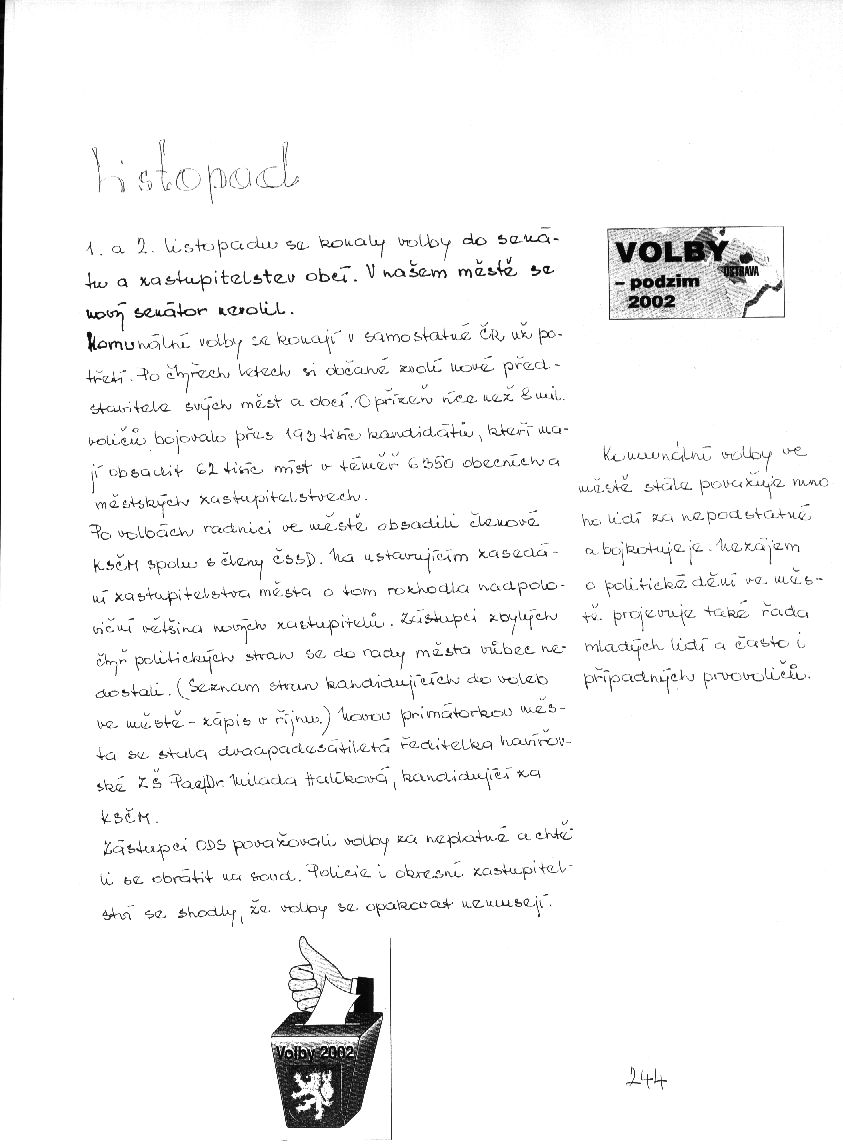 Listopad
1. a 2. listopadu se konaly volby do sená-
tu a zastupitelstev obcí. V našem městě se
nový senátor nevolil.
Komunální volby se konají v samostatné ČR už po-
třetí. Po čtyřech letech si občané zvolí nové před-
stavitele svých měst a obcí. O přízeň více než 8 mil.
voličů bojovalo přes 193 tisíc kandidátů, kteří ma-
jí obsadit 62 tisíc míst v téměř 6350 obecních a
městských zastupitelstvech.
Po volbách radnici ve městě obsadili členové
KSČM spolu s členy ČSSD. Na ustavujícím zasedá-
ní zastupitelstva města o tom rozhodla nadpolo-
viční většina nových zastupitelů. Zástupci zbylých
čtyř politických stran se do rady města vůbec ne-
dostali. (Seznam stran kandidujících do voleb
ve městě - zápis v říjnu.) Novou primátorkou měs-
ta se stala dvaapadesátiletá ředitelka havířov-
ské ZŠ PaedDr. Milada Halíková, kandidující za
KSČM.
Zástupci ODS považovali volby za neplatné a chtě
li se obrátit na soud. Policie i okresní zastupitel-
ství se shodly, že volby se opakovat nemusejí.
VOLBY
OSTRAVA
- podzim
2002
Komunální volby ve
městě stále považuje mno
ho lidí za nepodstatné
a bojkotuje je. Nezájem
o politické dění ve měs-
tě projevuje také řada
mladých lidí a často i
případných prvovoličů.
Volby 2002
244